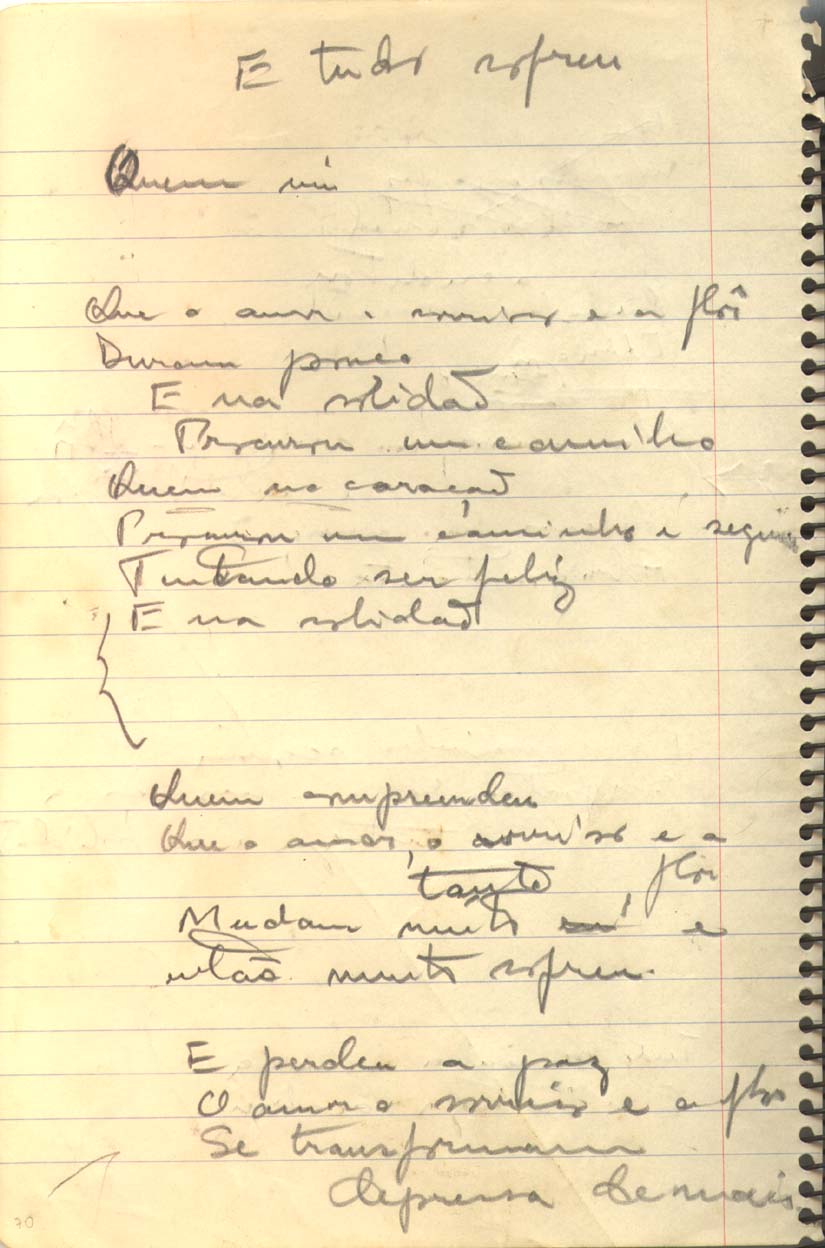 E tudo sofreu
Quem viu
Que o amor o sorriso e a flôr
Duram pouco
E na solidão
Procurou um caminho
Quem no coração
Procurou um caminho e seguiu
Tentando ser feliz
E na solidão
Quem compreendeu
Que o amor, o sorriso e a
tanto flor
Mudam muito e
então muito sofreu.
E perdeu a paz
O amor o sorriso e a flor
Se transformam
depressa demais
70